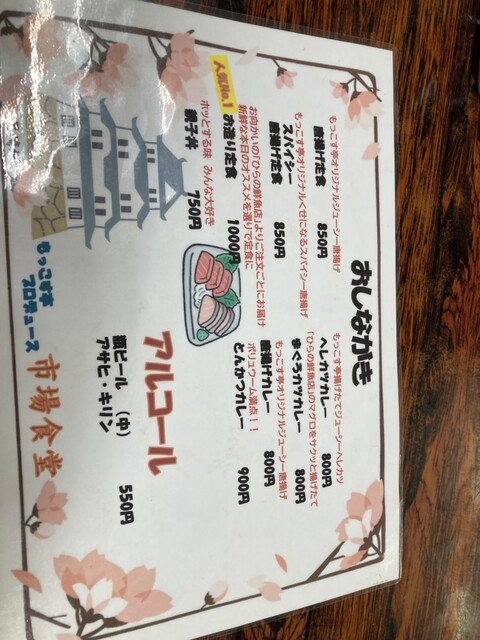 おしながき
もっこす亭オリジナルジューシー唐揚げ
唐揚げ定食 850円
もっこす亭オリジナルくせになるスパイシー唐揚げ
スパイシー
唐揚げ定食 850円
お向かいの「ひらの鮮魚店」よりご注文ごとにお届け
新鮮な本日のオススメを選りで定食に
人気No.1 お造り定食 1000円
ホッとする味 みんな大好き
親子丼 750円
もっこす亭揚げたてジューシーヘレカツ
ヘレカツカレー 800円
「ひらの鮮魚店」のマグロをサクッと揚げたて
まぐろカツカレー 800円
もっこす亭オリジナルジューシー唐揚げ
唐揚げカレー 800円
ボリューム満点！！
とんかつカレー 900円
アルコール
瓶ビール （中）
アサヒ・キリン 550円
もっこす亭
プロデュース
市場食堂